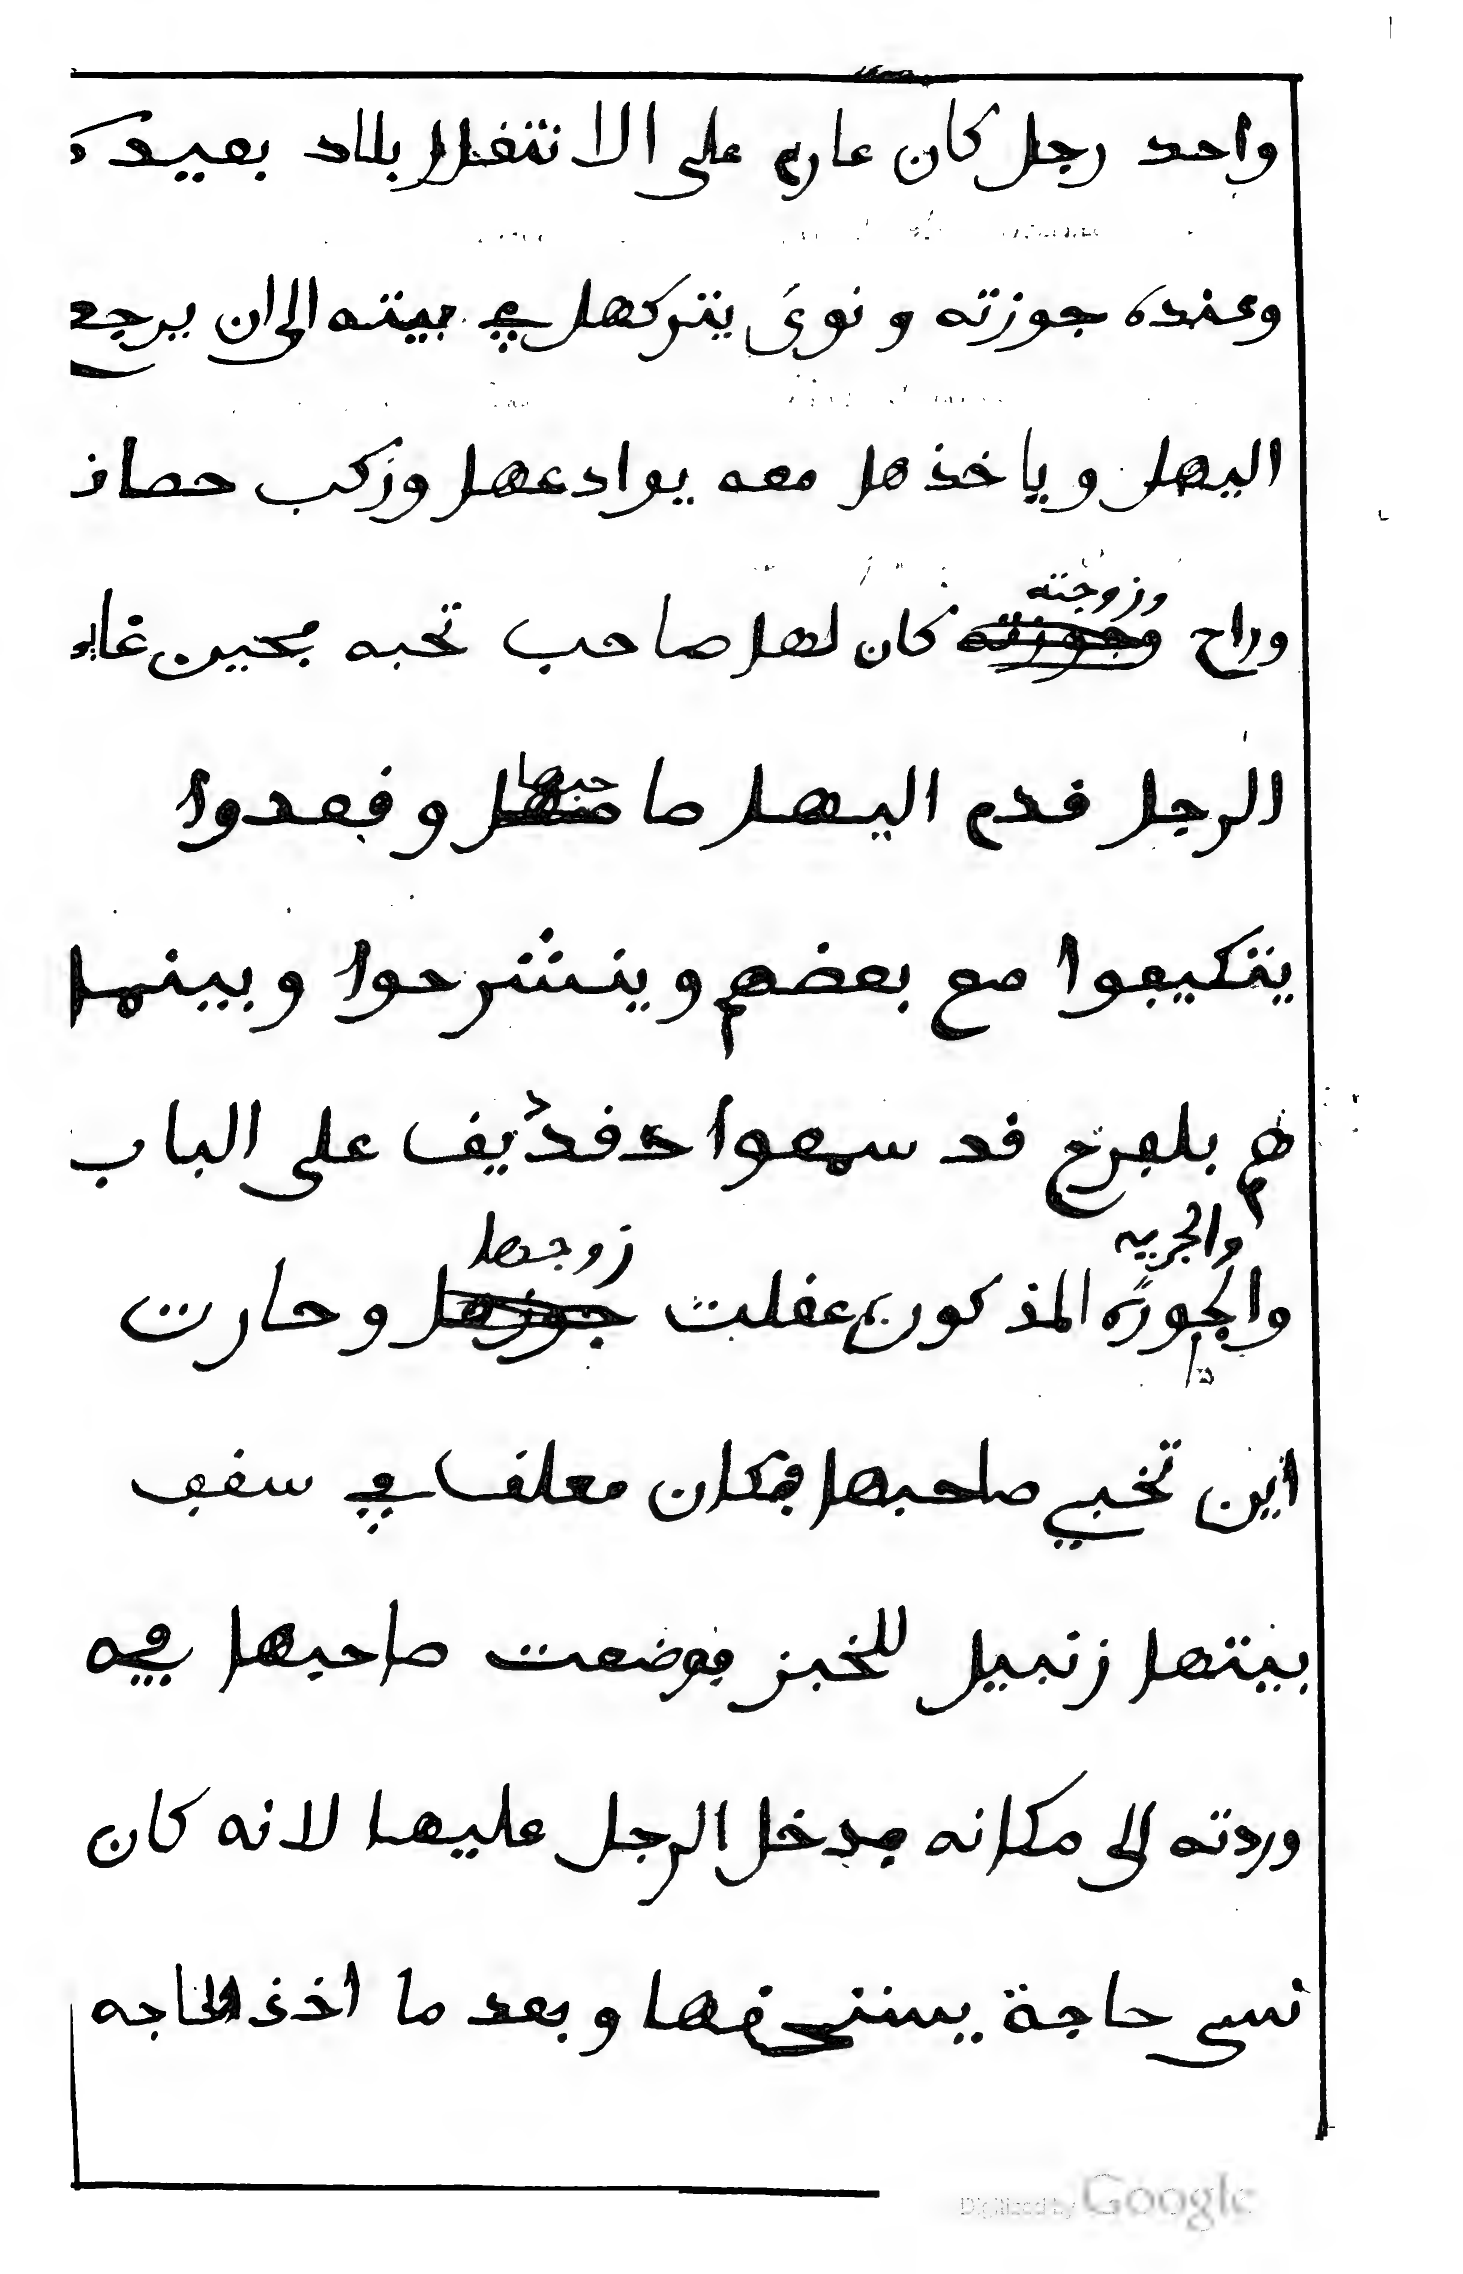 واحد رجل كان عازم على الانتقال لبلاد بعيده
وعنده جوزته ونوى يتركها في بيته الى ان يرجع
اليها وياخذها معه يوادعها وركب حصانه
وزوجته
وراح وجوزته كان لها صاحب تحبه بحين غاب
حبها
الرجل قدم اليها صاحبها وقعدوا
يتكيفوا مع بعضهم وينشرحوا وبينما
هم بلفرح قد سمعوا دقديف على الباب
والجريه زوجها
والجوزة المذكوره عقلت جوزها وحارت
اين تخبي صاحبها فكان معلق في سقف
بيتها زنبيل للخبز فوضعت صاحبها فيه
وردته الى مكانه فدخل الرجل عليها لانه كان
نسي حاجة يستحقها وبعد ما اخذ الحاجه
Digitized by Google